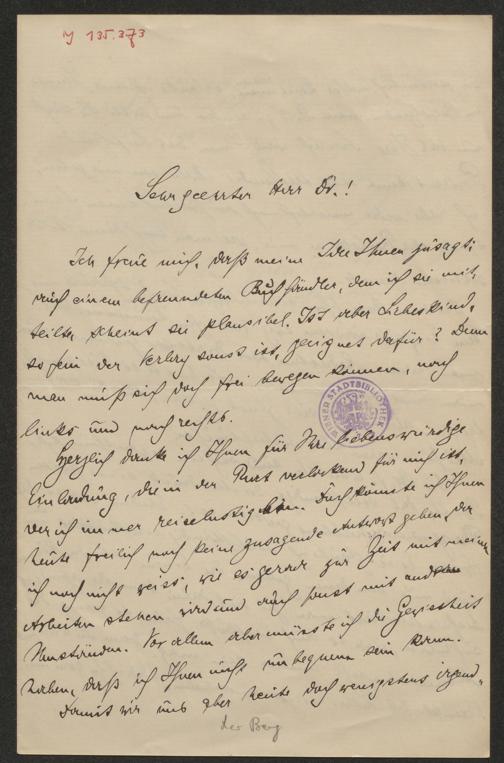 J 135.373
Sehr geehrter Herr Dr.!
Ich freue mich, daß meine Idee Ihnen zusagt;
auch einem befreundeten Buchhändler, dem ich sie mit-
teilte, scheint sie plausibel. Ist aber Liebeskind,
so fein der Verlag sonst ist, geeignet dafür? Denn
man muß sich doch frei bewegen können, nach
links und nach rechts.
WIENER STADTBIBLIOTHEK
Herzlich danke ich Ihnen für Ihre liebenswürdige
Einladung, die in der That verlockend für mich ist,
der ich immer reiselustig bin. Doch könnte ich Ihnen
heute freilich noch keine zusagende Antwort geben, da
ich noch nicht weiss, wie es gerade zur Zeit mit meinen
Arbeiten stehen wird und auch sonst mit
Umständen. Vor allem aber müsste ich die Gewissheit
haben, daß ich Ihnen nicht unbequem sein kann.
Damit wir uns aber heute doch wenigstens irgend-
der Berg